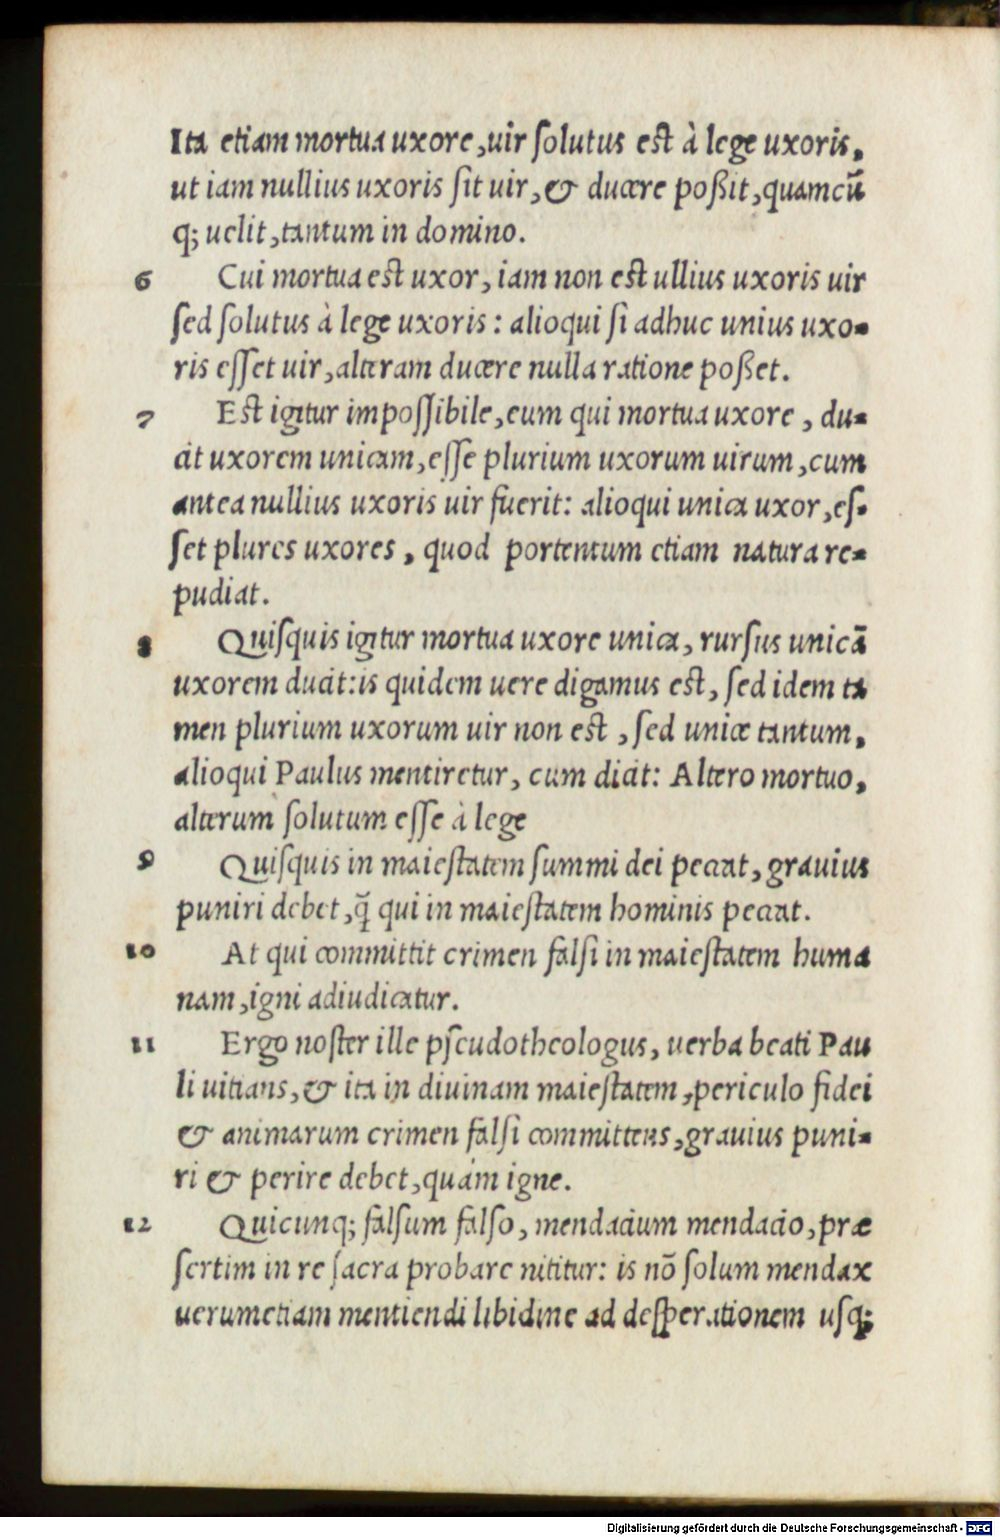 Ita etiam mortua uxore,uir ſolutus eſt à lege uxoris,
ut iam nullius uxoris ſit uir,& ducere poßit,quamcũ
q; uelit,tantum in domino.
6 Cui mortua eſt uxor, iam non eſt ullius uxoris uir
ſed ſolutus à lege uxoris : alioqui ſi adhuc unius uxo-
ris eſſet uir,alteram ducere nulla ratione poßet.
7 Eſt igitur impoſſibile,eum qui mortua uxore , du-
cit uxorem unicam,eſſe plurium uxorum uirum,cum
antea nullius uxoris uir fuerit: alioqui unica uxor,eſ-
ſet plures uxores , quod portentum etiam natura re-
pudiat.
8 Quiſquis igitur mortua uxore unica, rurſus unicã
uxorem ducit:is quidem uere digamus eſt, ſed idem ta
men plurium uxorum uir non eſt , ſed unicæ tantum,
alioqui Paulus mentiretur, cum dicit: Altero mortuo,
alterum ſolutum eſſe à lege
9 Quiſquis in maieſtatem ſummi dei peccat, grauius
puniri debet,q̃ qui in maieſtatem hominis peccat.
10 At qui committit crimen falſi in maieſtatem huma
nam,igni adiudicatur.
11 Ergo noſter ille pſeudotheologus, uerba beati Pau
li uitians,& ita in diuinam maieſtatem,periculo fidei
& animarum crimen falſi committens,grauius puni-
ri & perire debet,quàm igne.
12 Quicunq; falſum falſo, mendacium mendacio,præ
ſertim in re ſacra probare nititur: is nõ ſolum mendax
uerumetiam mentiendi libidine ad deſperationem uſq;
Digitalisierung gefördert durch die Deutsche Forschungsgemeinschaft - DFG